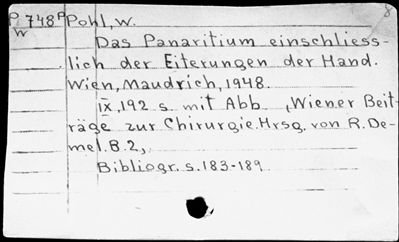 P 748 Pohl, W.
W
Das Panaritium einschliess-
lich der Eiterungen der Hand.
Wien, Maudrich, 1948.
IX, 192 s. mit Abb. , Wiener Beit-
räge zur Chirurgie. Hrsg. von R. De-
mel. B. 2,.
Bibliogr. s. 183-189